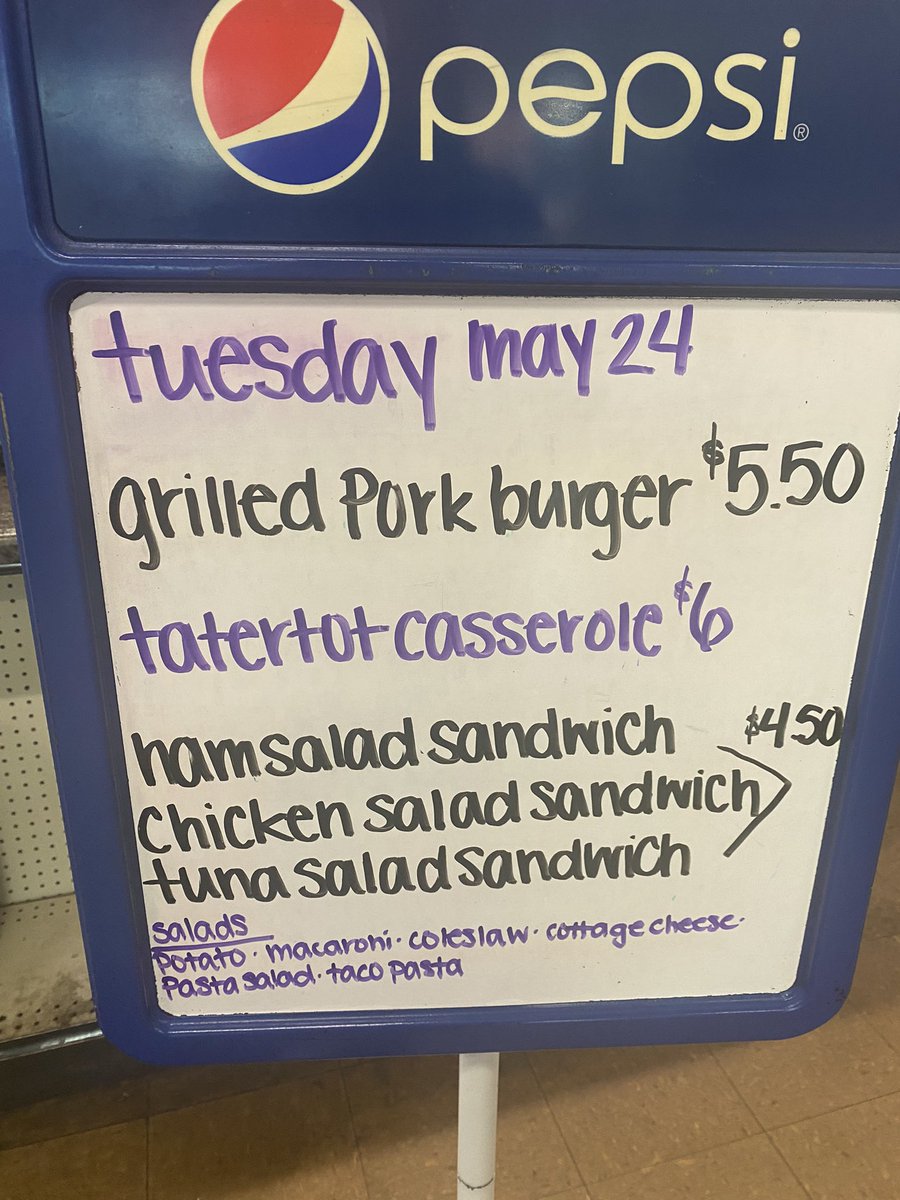 pepsi®
tuesday may 24
grilled Pork burger $5.50
tatertot casserole $6
hamsalad sandwich $4.50
Chicken salad sandwich
tuna salad sandwich
salads
Potato · macaroni · coleslaw · cottage cheese ·
Pasta salad · taco pasta